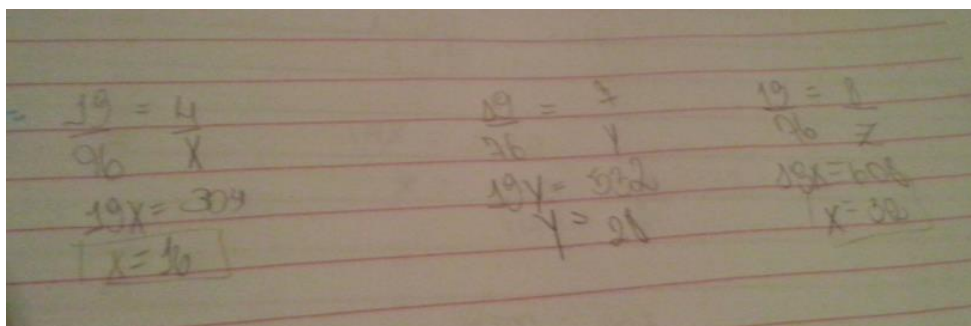 19 = 4
96 x
19x = 304
x = 16
19 = 7
76 y
19y = 532
y = 28
19 = 8
76 z
19x = 608
x = 32